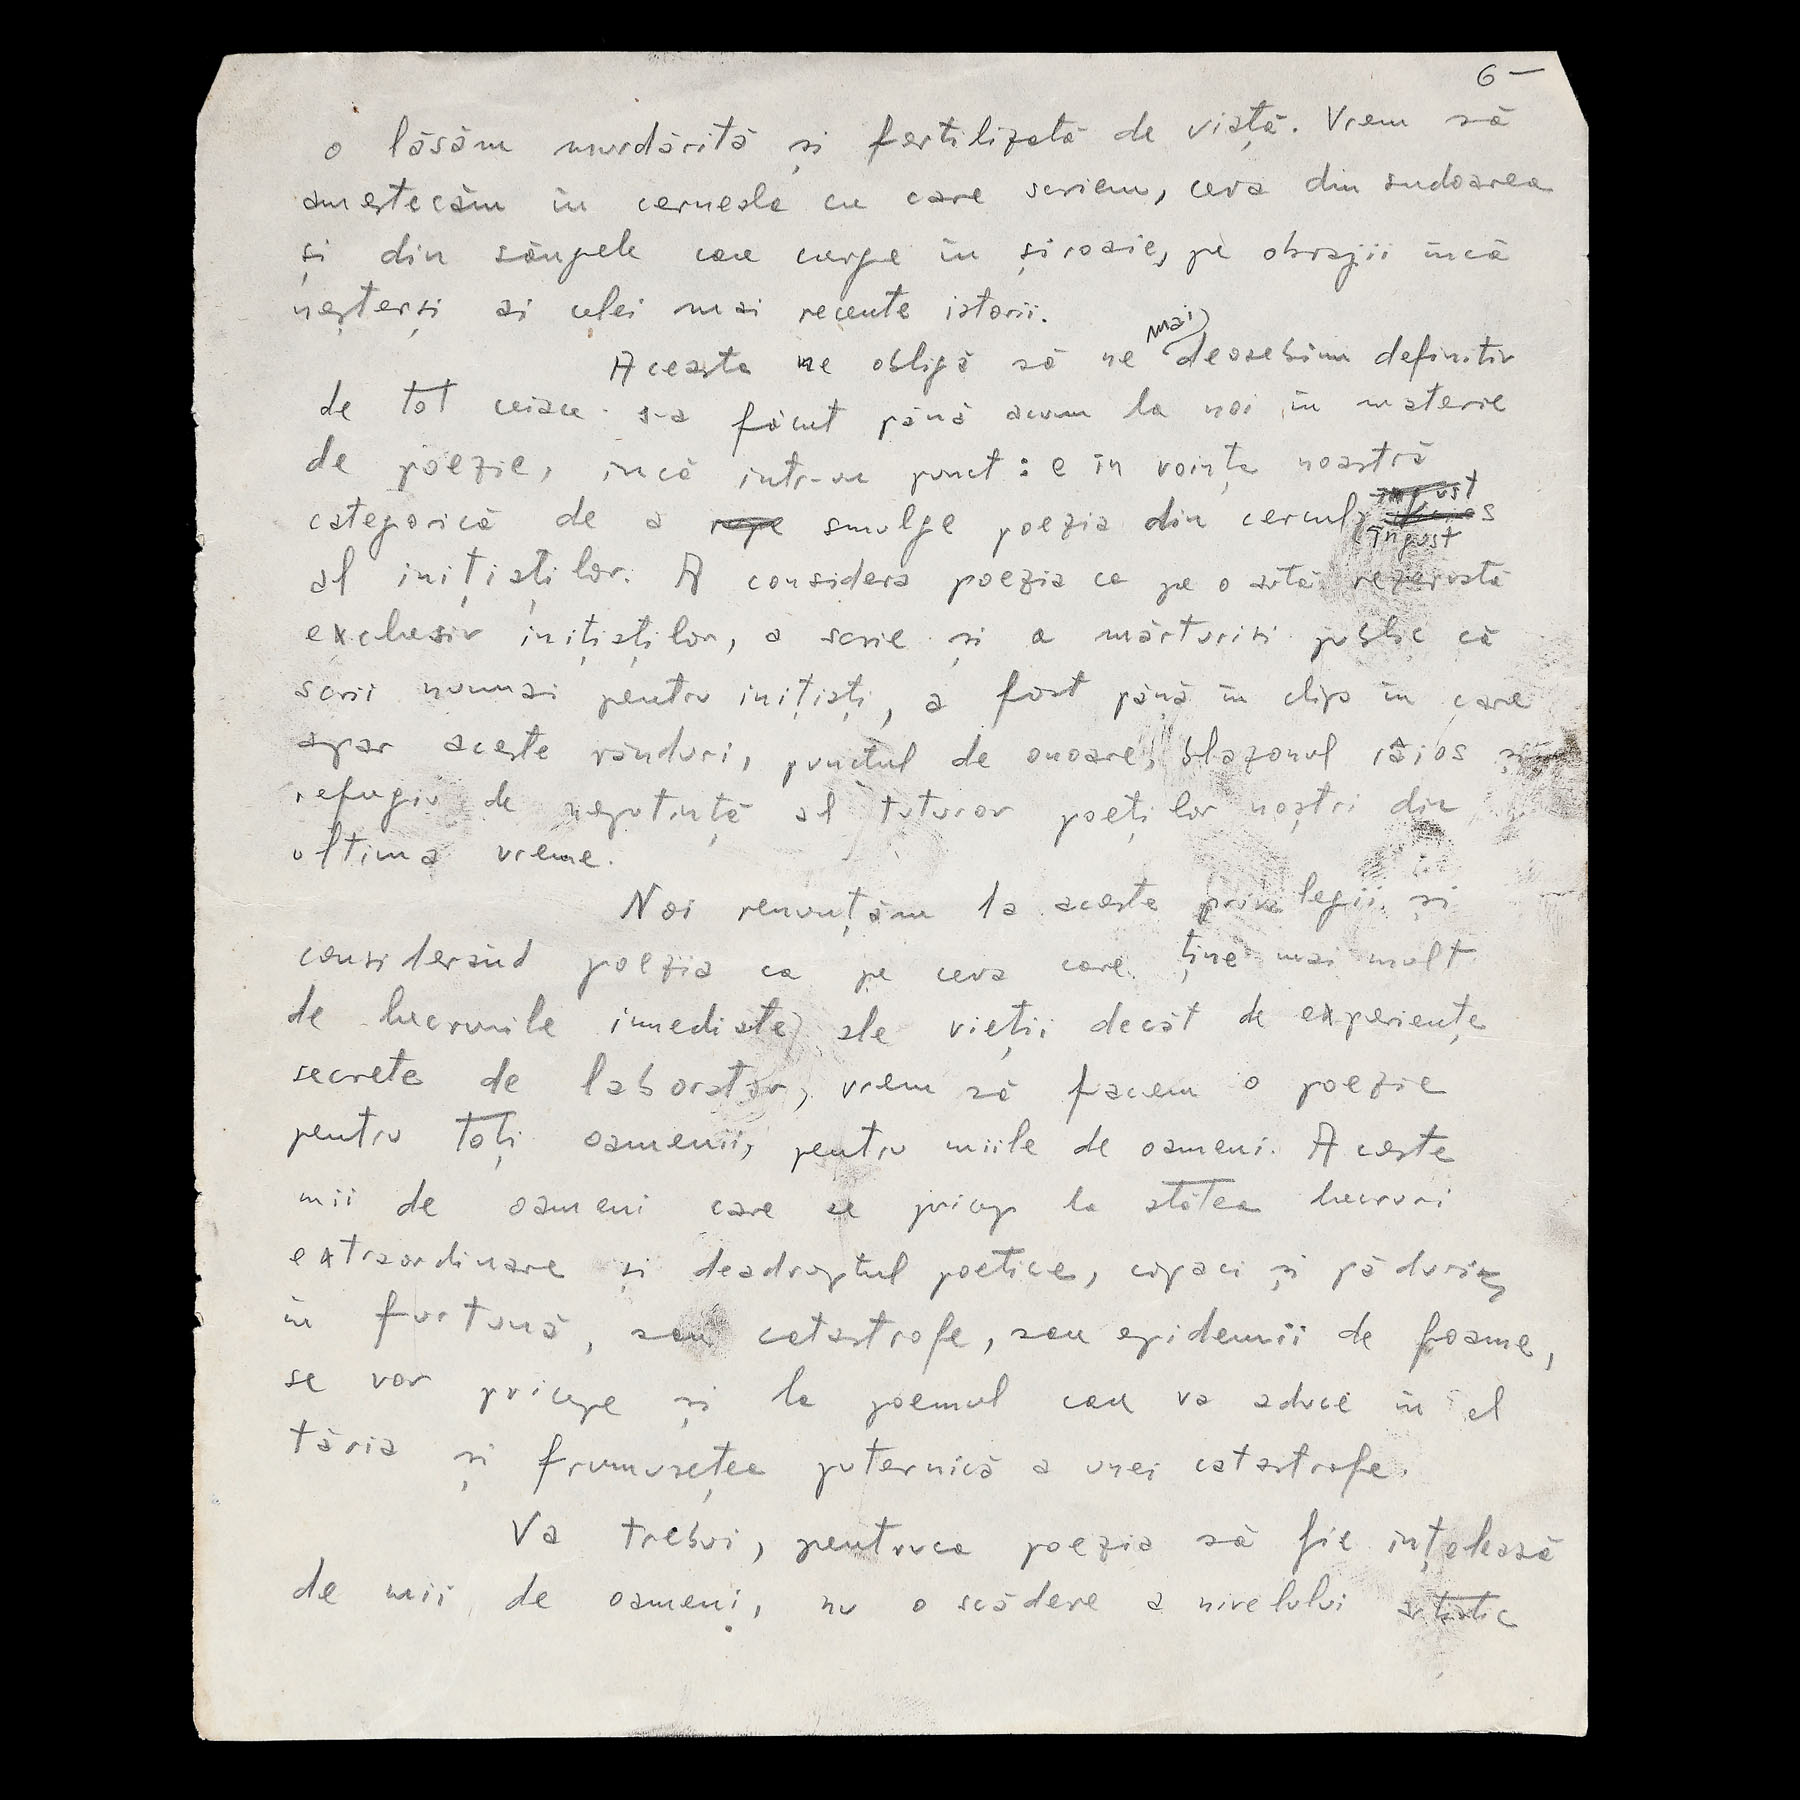 6 —
o lăsăm murdărită și fertilizată de viață. Vrem să
amestecăm în cerneala cu care scriem, ceva din sudoarea
și din sângele care curge în șiroaie, pe obrajii încă
neșterși ai celei mai recente istorii.
mai
Aceasta ne obligă să ne deosebim definitiv
de tot ceiace s-a făcut până acum la noi în materie
de poezie, încă intr-un punct: e în voința noastră
îngust
categorică de a rupe smulge poezia din cercul
îngust
al inițiaților. A considera poezia ca pe o artă rezervată
exclusiv inițiaților, a scrie și a mărturisi public că
scrii numai pentru inițiați, a fost până în clipa în care
apar aceste rânduri, punctul de onoare, blazonul râios și
refugiu de neputință al tuturor poeților noștri din
ultima vreme.
Noi renunțăm la aceste privilegii și
considerând poezia ca pe ceva care ține mai mult
de lucrurile imediate, ale vieții decât de experiențe
secrete de laborator, vrem să facem o poezie
pentru toți oamenii, pentru miile de oameni. Aceste
mii de oameni care se pricep la atâtea lucruri
extraordinare și deadreptul poetice, copaci și păduri
în furtună, sau catastrofe, sau epidemii de foame,
se vor pricepe și la poemul care va aduce în el
tăria și frumusețea puternică a unei catastrofe.
Va trebui, pentruca poezia să fie înțeleasă
de mii de oameni, nu o scădere a nivelului artistic